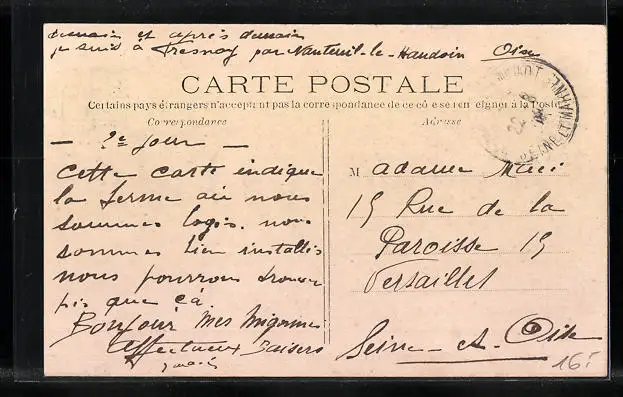 demain et après demain
je suis à Fresnoy par Nanteuil-le-Haudoin Oise
CARTE POSTALE
Certains pays étrangers n'acceptent pas la correspondance de ce côté se renseigner à la Poste
Correspondance
Adresse
— 2e jour —
Cette carte indique
la ferme où nous
sommes logés. nous
sommes bien installés
nous pourrons trouver
pis que ça.
Bonjour mes mignonnes
affectueux Baisers
M adame
15 Rue de la
Paroisse 15
Versailles
Seine-et-Oise
22 8
SEINE ET MARNE
16